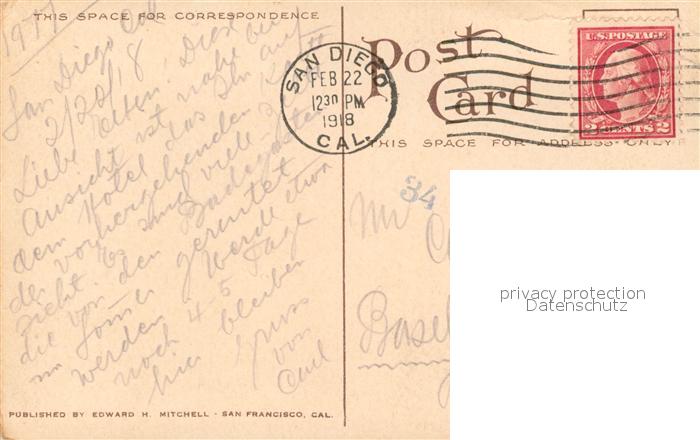 THIS SPACE FOR CORRESPONDENCE
San Diego Cal
2/22/18
Liebe Eltern, Diese
Ansicht ist nahe bei
dem Hotel das Ihr auf
der vorhergehenden Karte
sieht. Es sind viele
die von den Badegästen
im Sommer gemietet
werden. Werde etwa
noch 4-5 Tage
hier bleiben
Gruss
von
Carl
PUBLISHED BY EDWARD H. MITCHELL - SAN FRANCISCO, CAL.
Post
Card
THIS SPACE FOR ADDRESS ONLY
SAN DIEGO
FEB 22
1230 PM
1918
CAL.
U.S. POSTAGE
2 CENTS 2
34
Mr
Basel
privacy protection
Datenschutz